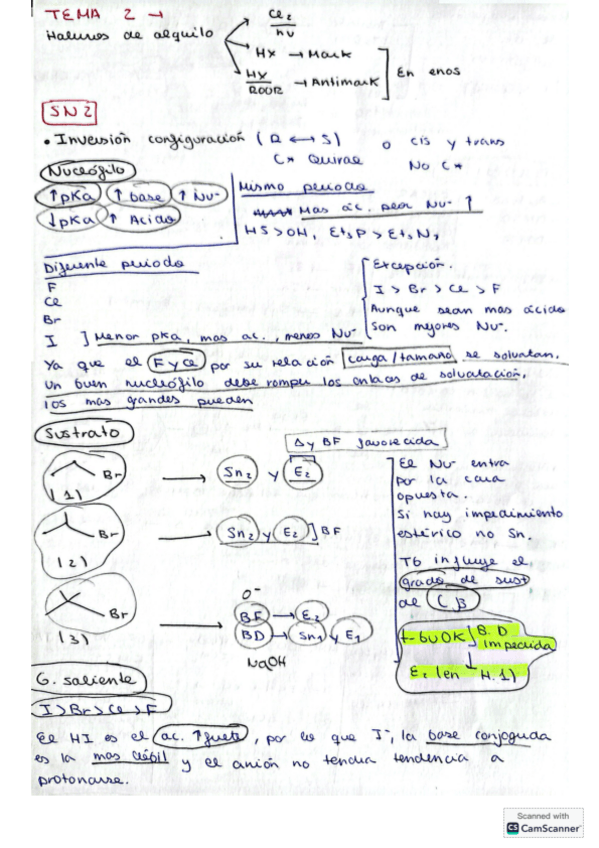 TEMA 2 →
Haluros de alquilo
Cl2/hν
HX → Mark
HX/ROOR → Antimark
En enos
SN2
• Inversión configuración (R ↔ S) o cis y trans
C* Quirae No C*
Nucleófilo
↑pKa ↑base ↑Nu-
↓pKa ↑Acido
Mismo periodo
Mas ác. peor Nu- ↑
HS > OH, Et3P > Et3N,
Diferente periodo
F
Cl
Br
I ] Menor pKa, mas ac., menos Nu-
Excepción.
I > Br > Cl > F
Aunque sean mas ácido
son mejores Nu-.
Ya que el F y Cl por su relación carga/tamaño se solvatan.
Un buen nucleófilo debe romper los enlaces de solvatación.
los mas grandes pueden
Sustrato
Δ y BF favorecida
Br (1) → Sn2 y E2
Br (2) → Sn2 y E2 ] BF
Br (3) →
O-
BF → E2
BD → Sn1 y E1
NaOH
El Nu- entra
por la cara
opuesta.
Si hay impedimiento
estérico no Sn.
Tb influye el
grado de sust
de Cβ
t-BuOK B.D
impedida
E2 (en H.1)
G. saliente
I > Br > Cl > F
El HI es el ac. ↑fuerte, por lo que I-, la base conjugada
es la mas débil y el anión no tendra tendencia a
protonarse.
Scanned with
CS CamScanner